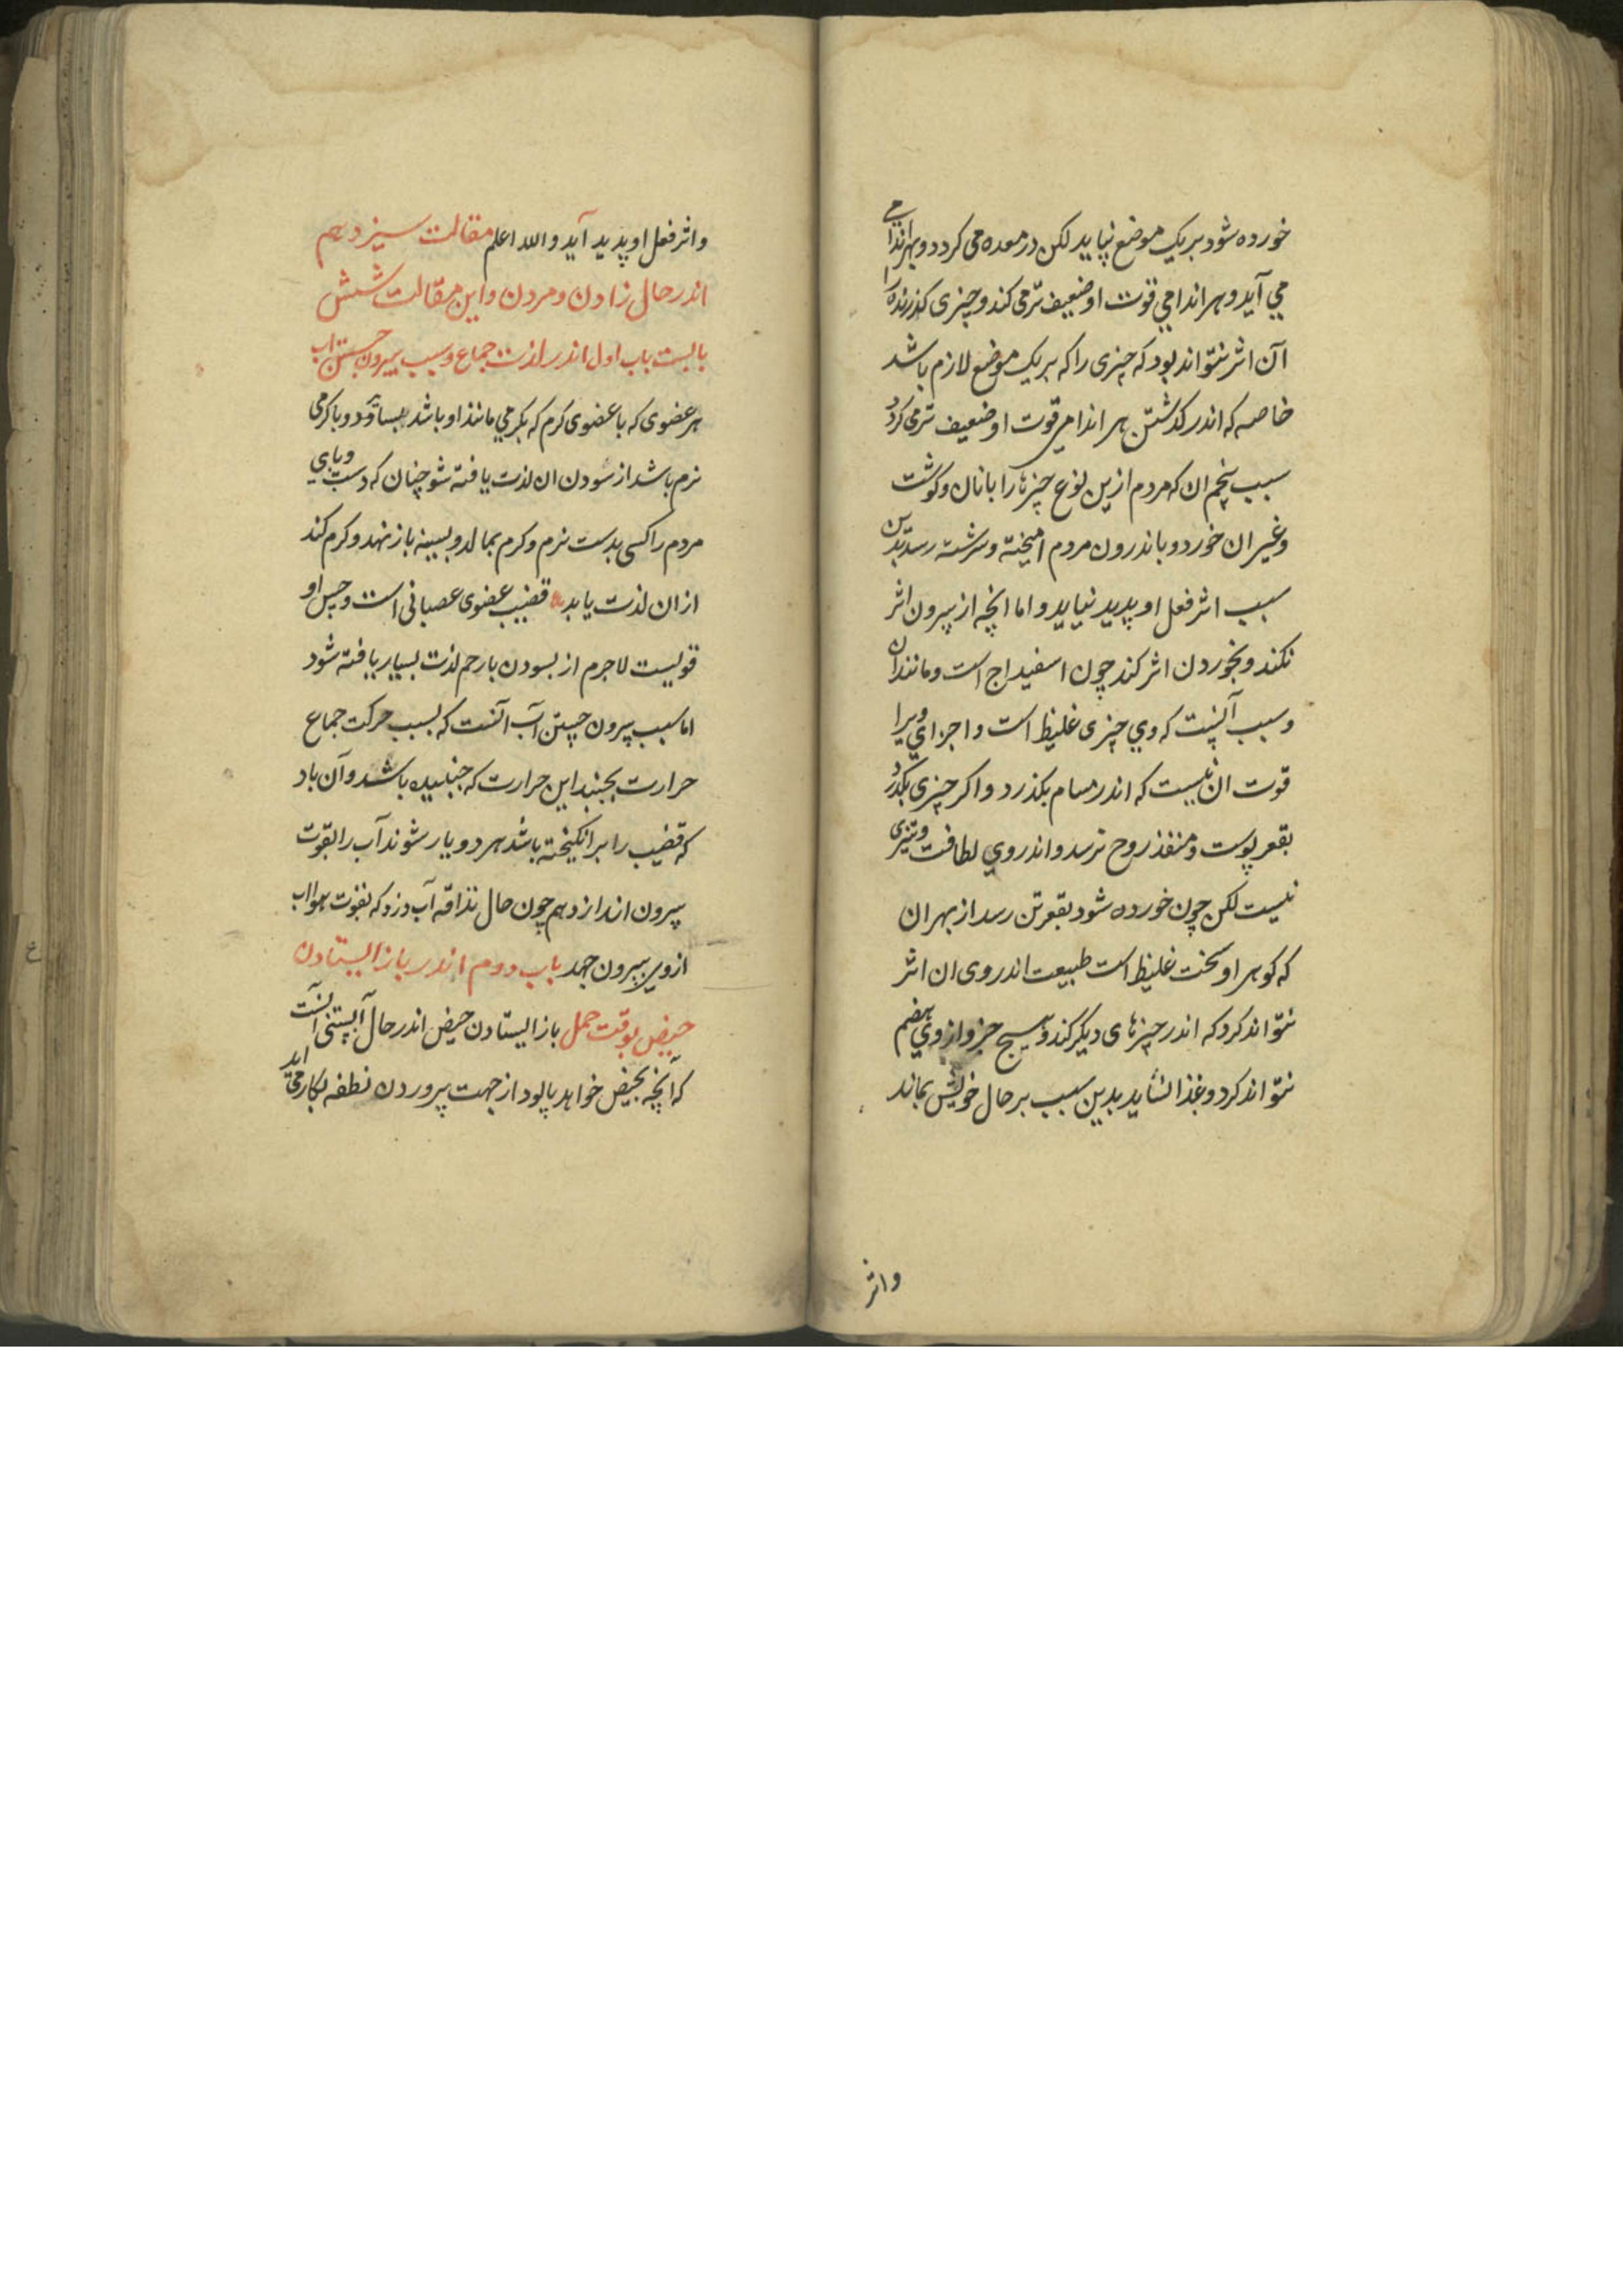 خورده شود بر یک موضع نپاید لکن در معده می کردد و بهر اندامی
می آید و هر اندامی قوت او ضعیف تر می کند و چیزی کذرنده را
آن اثر نتواند بود که چیزی را که بر یک موضع لازم باشد
خاصه که اندر کذشتن هر اندامی قوت او ضعیف تر می کردد
سبب پنجم ان که مردم ازین نوع چیزها را با نان و کوشت
و غیر ان خورد و باندرون مردم امیخته و سرشته رسد بدین
سبب اثر فعل او پدید نیاید و اما انچه از بیرون اثر
نکند و بخوردن اثر کند چون اسفیداج است و مانند ان
و سبب آنست که وی چیزی غلیظ است و اجزای ویرا
قوت ان نیست که اندر مسام بکذرد و اکر چیزی بکذرد
بقعر پوست و منفذ روح نرسد و اندر وی لطافت و تیزی
نیست لکن چون خورده شود بقعر تن رسد از بهر ان
که کوهر او سخت غلیظ است طبیعت اندر وی ان اثر
نتواند کرد که اندر چیزهای دیکر کند و هیچ جزو از وی هضم
نتواند کرد و غذا نشاید بدین سبب بر حال خویش بماند
و اثر
و اثر فعل او پدید آید والله اعلم مقالت سیزدهم
اندر حال زادن و مردن و این مقالت شش
بابست باب اول اندر لذت جماع و سبب بیرون جستن اب
هر عضوی که با عضوی کرم که بکرمی مانند او باشد بساود و با کرمی
نرم باشد از سودن ان لذت یافته شو چنان که دست و پای
مردم را کسی بدست نرم و کرم بمالد و بسینه باز نهد و کرم کند
ازان لذت یابد قضیب عضوی عصبانی است و حس او
قویست لاجرم از بسودن با رحم لذت بسیار یافته شود
اما سبب بیرون جستن آب آنست که بسبب حرکت جماع
حرارت بجنبد این حرارت که جنبیده باشد و آن باد
که قضیب را برانکیخته باشد هر دو یار شوند آب را بقوت
بیرون اندازد هم چون حال زراقه آب دزد که بقوت هوا اب
از وی بیرون جهد باب دوم اندر باز ایستادن
حیض بوقت حمل باز ایستادن حیض اندر حال آبستنی آنست
که آنچه بحیض خواهد پالود از جهت پروردن نطفه بکار می اید